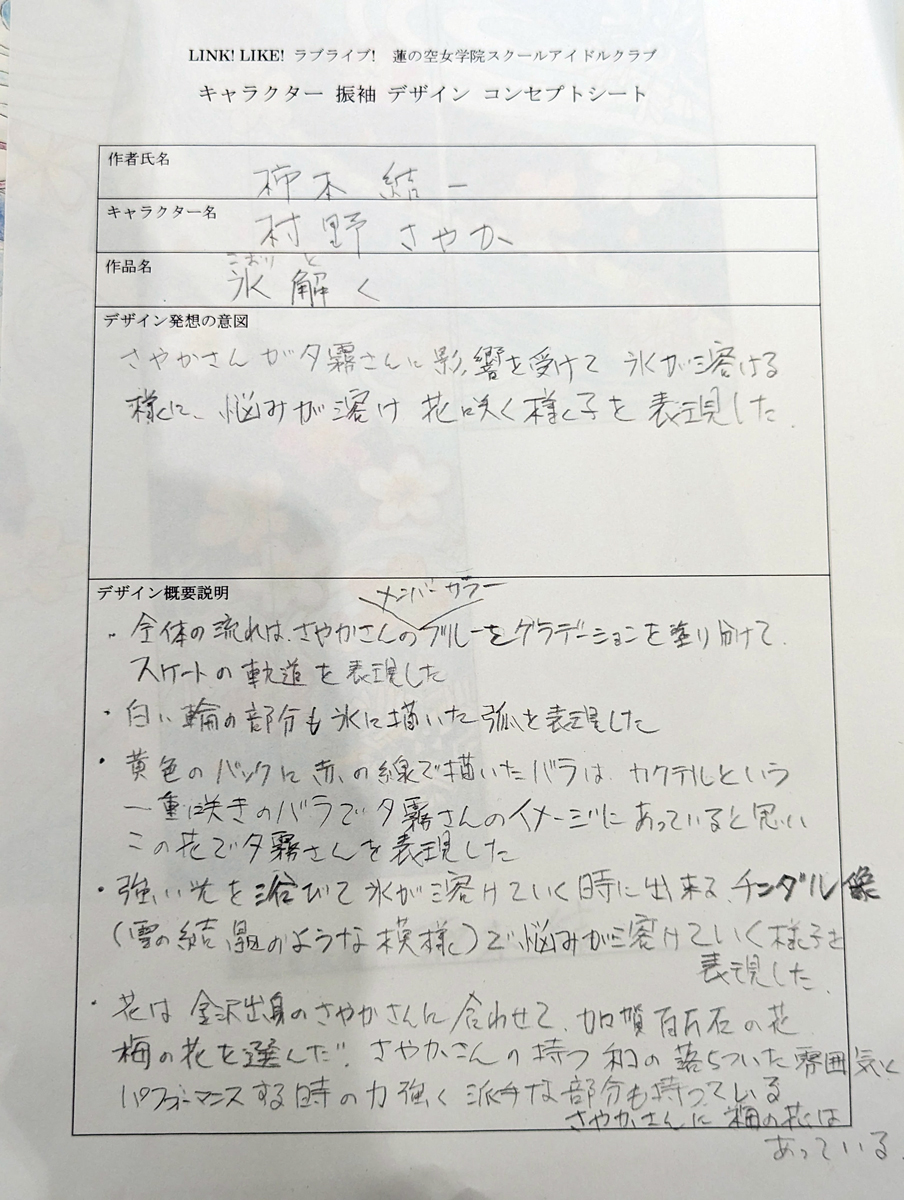 LINK! LIKE! ラブライブ! 蓮の空女学院スクールアイドルクラブ
キャラクター 振袖 デザイン コンセプトシート
作者氏名
柿本 結一
キャラクター名
村野 さやか
作品名
こおり と
氷 解く
デザイン発想の意図
さやかさんが夕霧さんに影響を受けて 氷が溶ける
様に、悩みが溶け 花咲く様子を表現した.
デザイン概要説明
メンバーカラー
・全体の流れは、さやかさんのブルーをグラデーションを塗り分けて、
スケートの軌道を表現した
・白い輪の部分も氷に描いた弧を表現した
・黄色のバックに赤の線で描いたバラは、カクテルという
一重咲きのバラで夕霧さんのイメージにあっていると思い
この花で夕霧さんを表現した
・強い光を浴びて氷が溶けていく時に出来る、チンダル像
(雪の結晶のような模様)で悩みが溶けていく様子を
表現した.
・花は金沢出身のさやかさんに合わせて、加賀百万石の花
梅の花を選んだ。さやかさんの持つ和の落ちついた雰囲気と
パフォーマンスする時の力強く派手な部分も持っている
さやかさんに梅の花は
あっている.